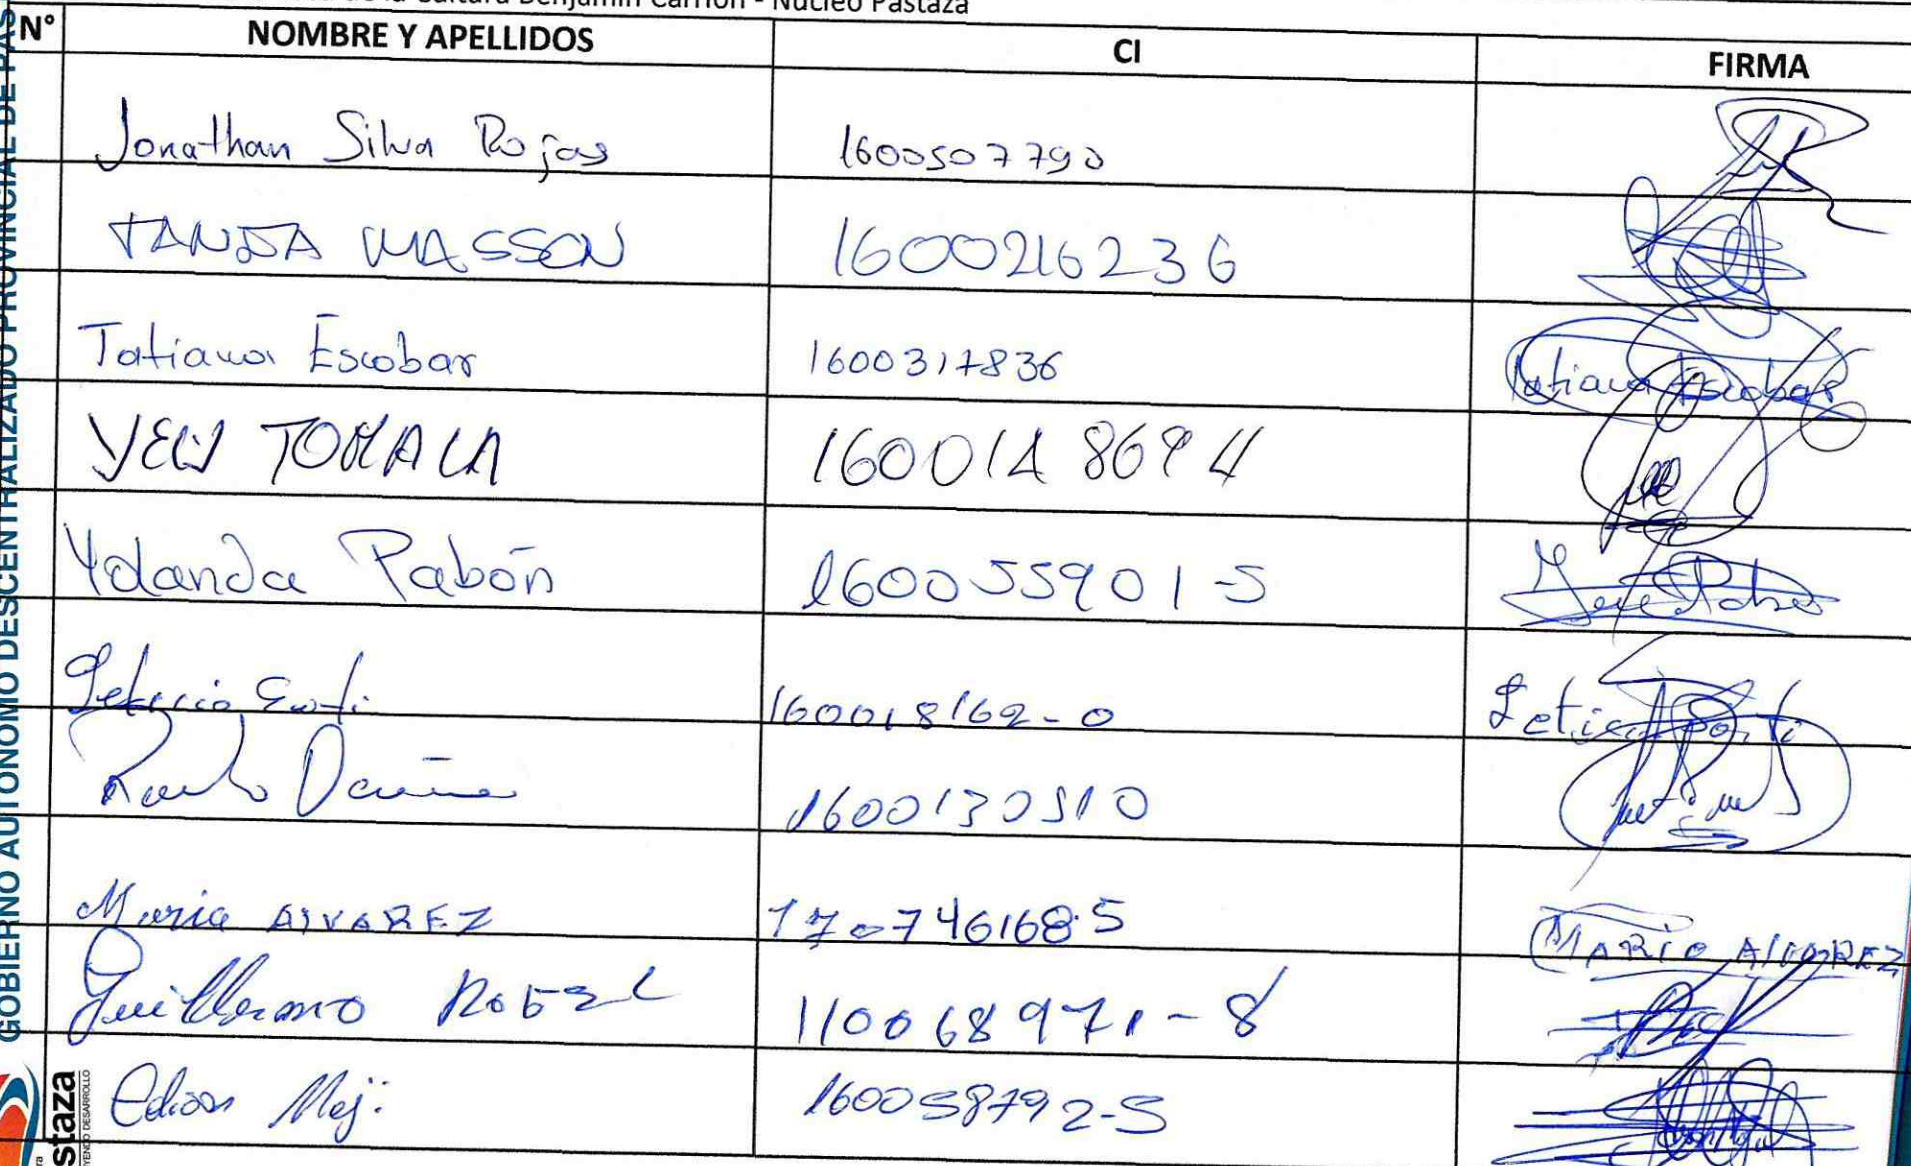 de la Cultura Benjamín Carrión - Núcleo Pastaza
N° NOMBRE Y APELLIDOS CI FIRMA
Jonathan Silva Rojas 1600507790
TANIA MASSON 1600216236
Tatiana Escobar 1600317836 Tatiana Escobar
YELY TOMALA 160014 8694
Yolanda Pabón 160055901-5
Leticia 160018162-0 Leticia
1600130510
Maria ALVAREZ 170746168-5 MARIA ALVAREZ
Guillermo 110068971-8
Edison Mej. 160058792-5
GOBIERNO AUTONOMO DESCENTRALIZADO PROVINCIAL DE PAS
staza
YENDO DESARROLLO